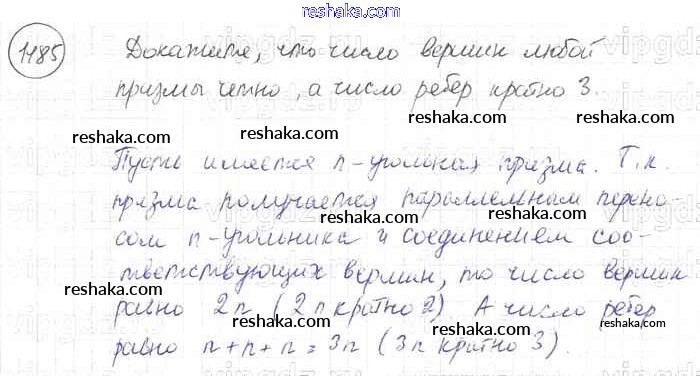 reshaka.com
1185 Докажите, что число вершин любой
призмы четно, а число ребер кратно 3.
reshaka.com
reshaka.com reshaka.com
Пусть имеется n-угольная призма. Т.к.
призма получается параллельным перено-
reshaka.com
сом n-угольника и соединением соо-
reshaka.com reshaka.com
тветствующих вершин, то число вершин
равно 2n (2n кратно 2). А число ребер
reshaka.com
равно n+n+n=3n (3n кратно 3).
reshaka.com reshaka.com